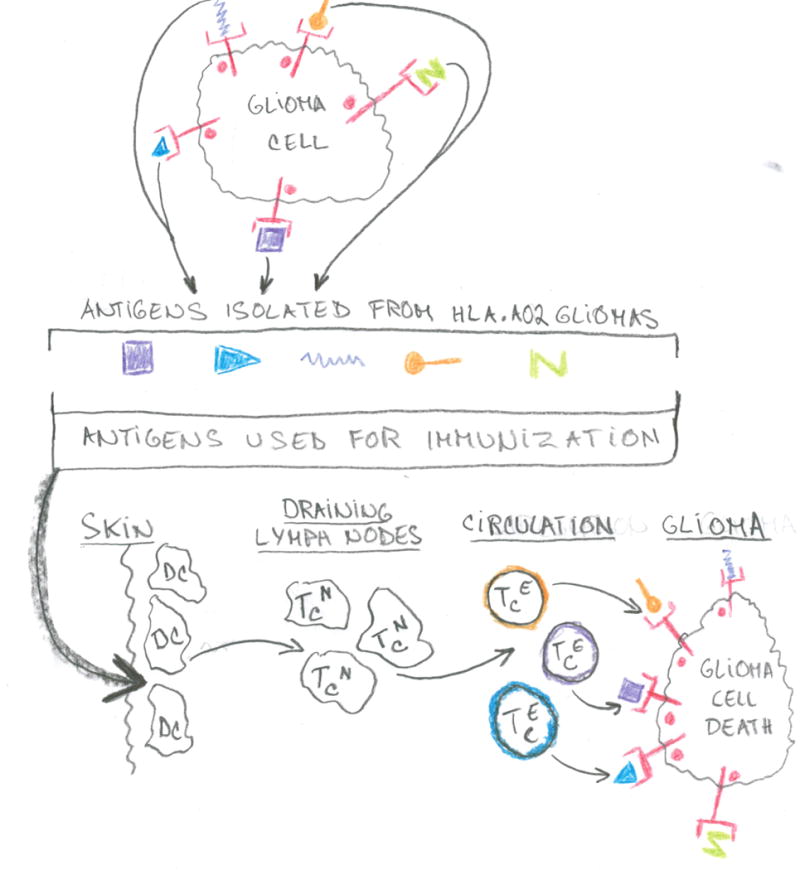 GLIOMA
CELL
ANTIGENS ISOLATED FROM HLA.A02 GLIOMAS
ANTIGENS USED FOR IMMUNIZATION
SKIN
DRAINING
LYMPH NODES
CIRCULATION
GLIOMA
DC
DC
DC
TCN
TCN
TCN
TCE
TCE
TCE
GLIOMA
CELL
DEATH